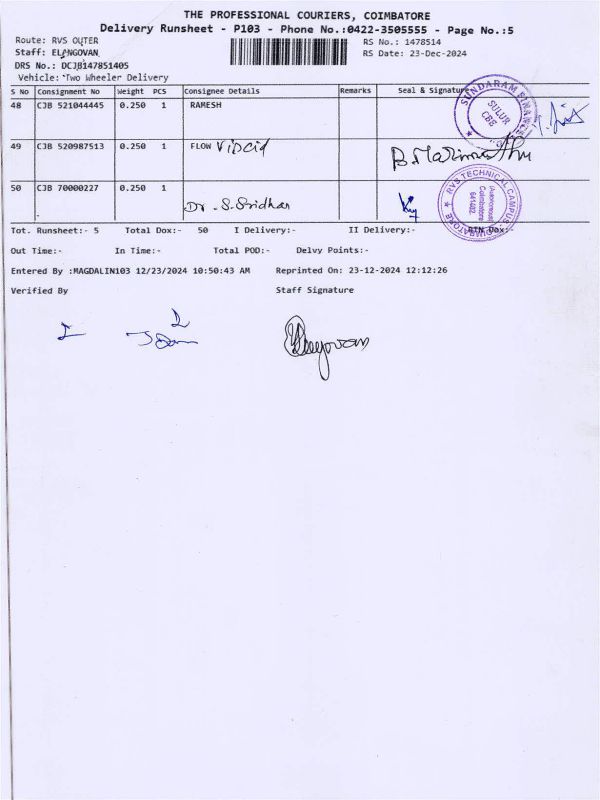 THE PROFESSIONAL COURIERS, COIMBATORE
Delivery Runsheet - P103 - Phone No.:0422-3505555 - Page No.:5
Route: RVS OUTER
RS No.: 1478514
Staff: ELANGOVAN
RS Date: 23-Dec-2024
DRS No.: DCJB147851405
Vehicle: Two Wheeler Delivery
S No Consignment No Weight PCS Consignee Details Remarks Seal & Signature
48 CJB 521044445 0.250 1 RAMESH
SUNDARAM FINANCE
SULUR
CBE
49 CJB 520987513 0.250 1 FLOW
50 CJB 70000227 0.250 1
Dr. S. Sridhar
RVS TECHNICAL CAMPUS
(Autonomous)
Coimbatore
641402.
COIMBATORE
Tot. Runsheet:- 5 Total Dox:- 50 I Delivery:- II Delivery:- RTN Dox:-
Out Time:- In Time:- Total POD:- Delvy Points:-
Entered By :MAGDALIN103 12/23/2024 10:50:43 AM Reprinted On: 23-12-2024 12:12:26
Verified By Staff Signature